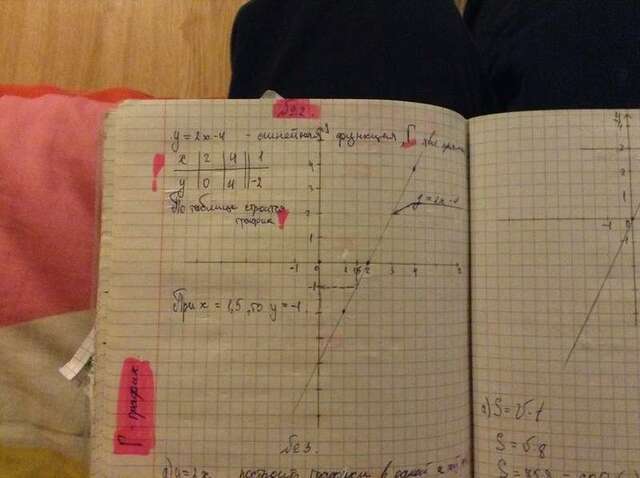 №2.
y = 2x-4 - линейная функция, Г
x 2 4 1
y 0 4 -2
По таблице строится
график
y = 2x-4
4
3
2
1
-1 0 1 1,5 2 3 4
-1
При x = 1,5, то y = -1.
Г - график
№3.
y = 2x построить графики в одной
y
-1 0
1
-1
а) S = v·t
S = v·8